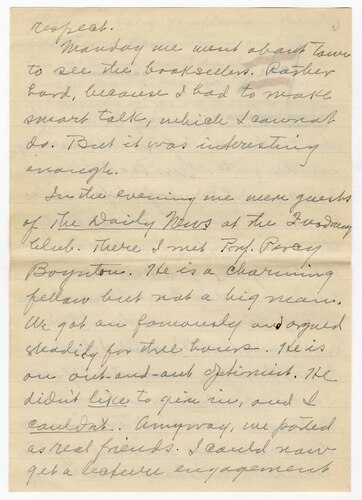 respect.
Monday we went about town
to see the booksellers. Rather
hard, because I had to make
smart talk, which I cannot
do. But it was interesting
enough.
In the evening we were guests
of The Daily News at the
Club. There I met Prof. Percy
Boynton. He is a charming
fellow but not a big man.
We got on famously and argued
steadily for three hours. He is
an out-and-out optimist. He
didn't like to give in, and I
couldn't. Anyway, we parted
as real friends. I could now
get a lecture engagement